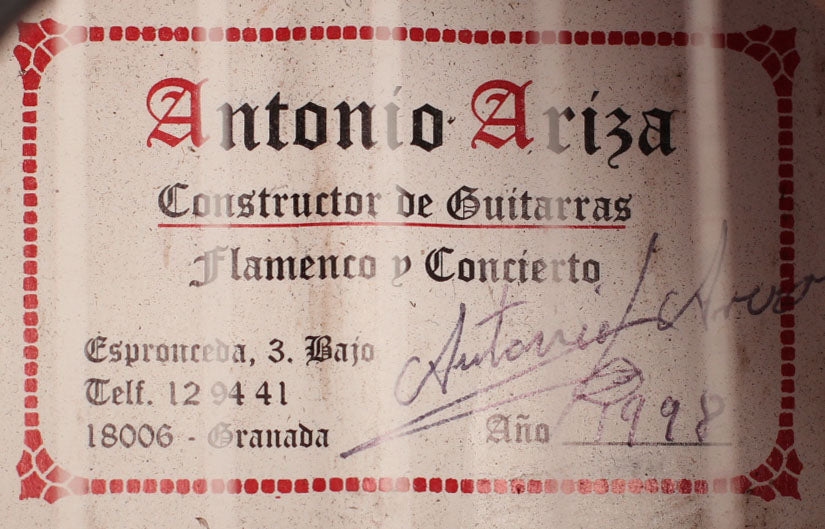 Antonio Ariza
Constructor de Guitarras
Flamenco y Concierto
Espronceda, 3. Bajo
Telf. 12 94 41
18006 - Granada
Antonio Ariza
Año 1998